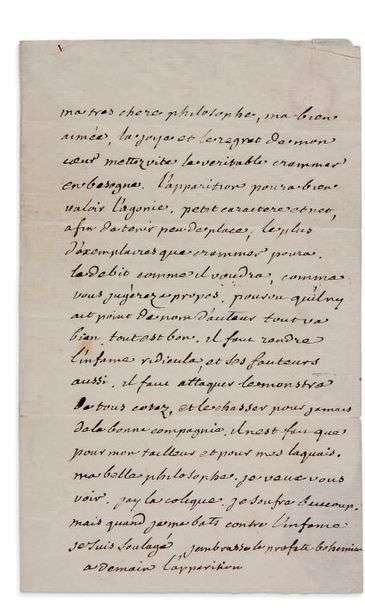 ma tres chere philosophe, ma bien
aimée, la joye et le regret de mon
cœur mettez vite le veritable crammer
en besogne. l'apparition poura bien
valoir l'agonie. petit caractere et net,
afin de tenir peu de place, le plus
d'exemplaires que crammer poura.
le debit comme il voudra, comme
vous jugerez a propos. pourvu qu'il ny
ait point de nom d'auteur tout va
bien, tout est bon. il faut rendre
l'infame ridicule, et ses fauteurs
aussi. il faut attaquer le monstre
de tous cotez, et le chasser pour jamais
de la bonne compagnie. il n'est fait que
pour mon tailleur et pour mes laquais.
ma belle philosophe. je veux vous
voir. jay la colique. je soufre beaucoup.
mais quand je me bats contre l'infame
je suis soulagé. jembrasse le profete bohemien
a demain l'apparition